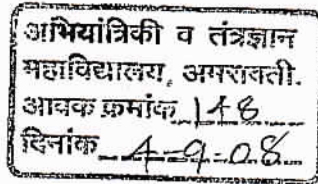 अभियांत्रिकी व तंत्रज्ञान
महाविद्यालय, अमरावती.
आवक क्रमांक 148
दिनांक 4-9-08